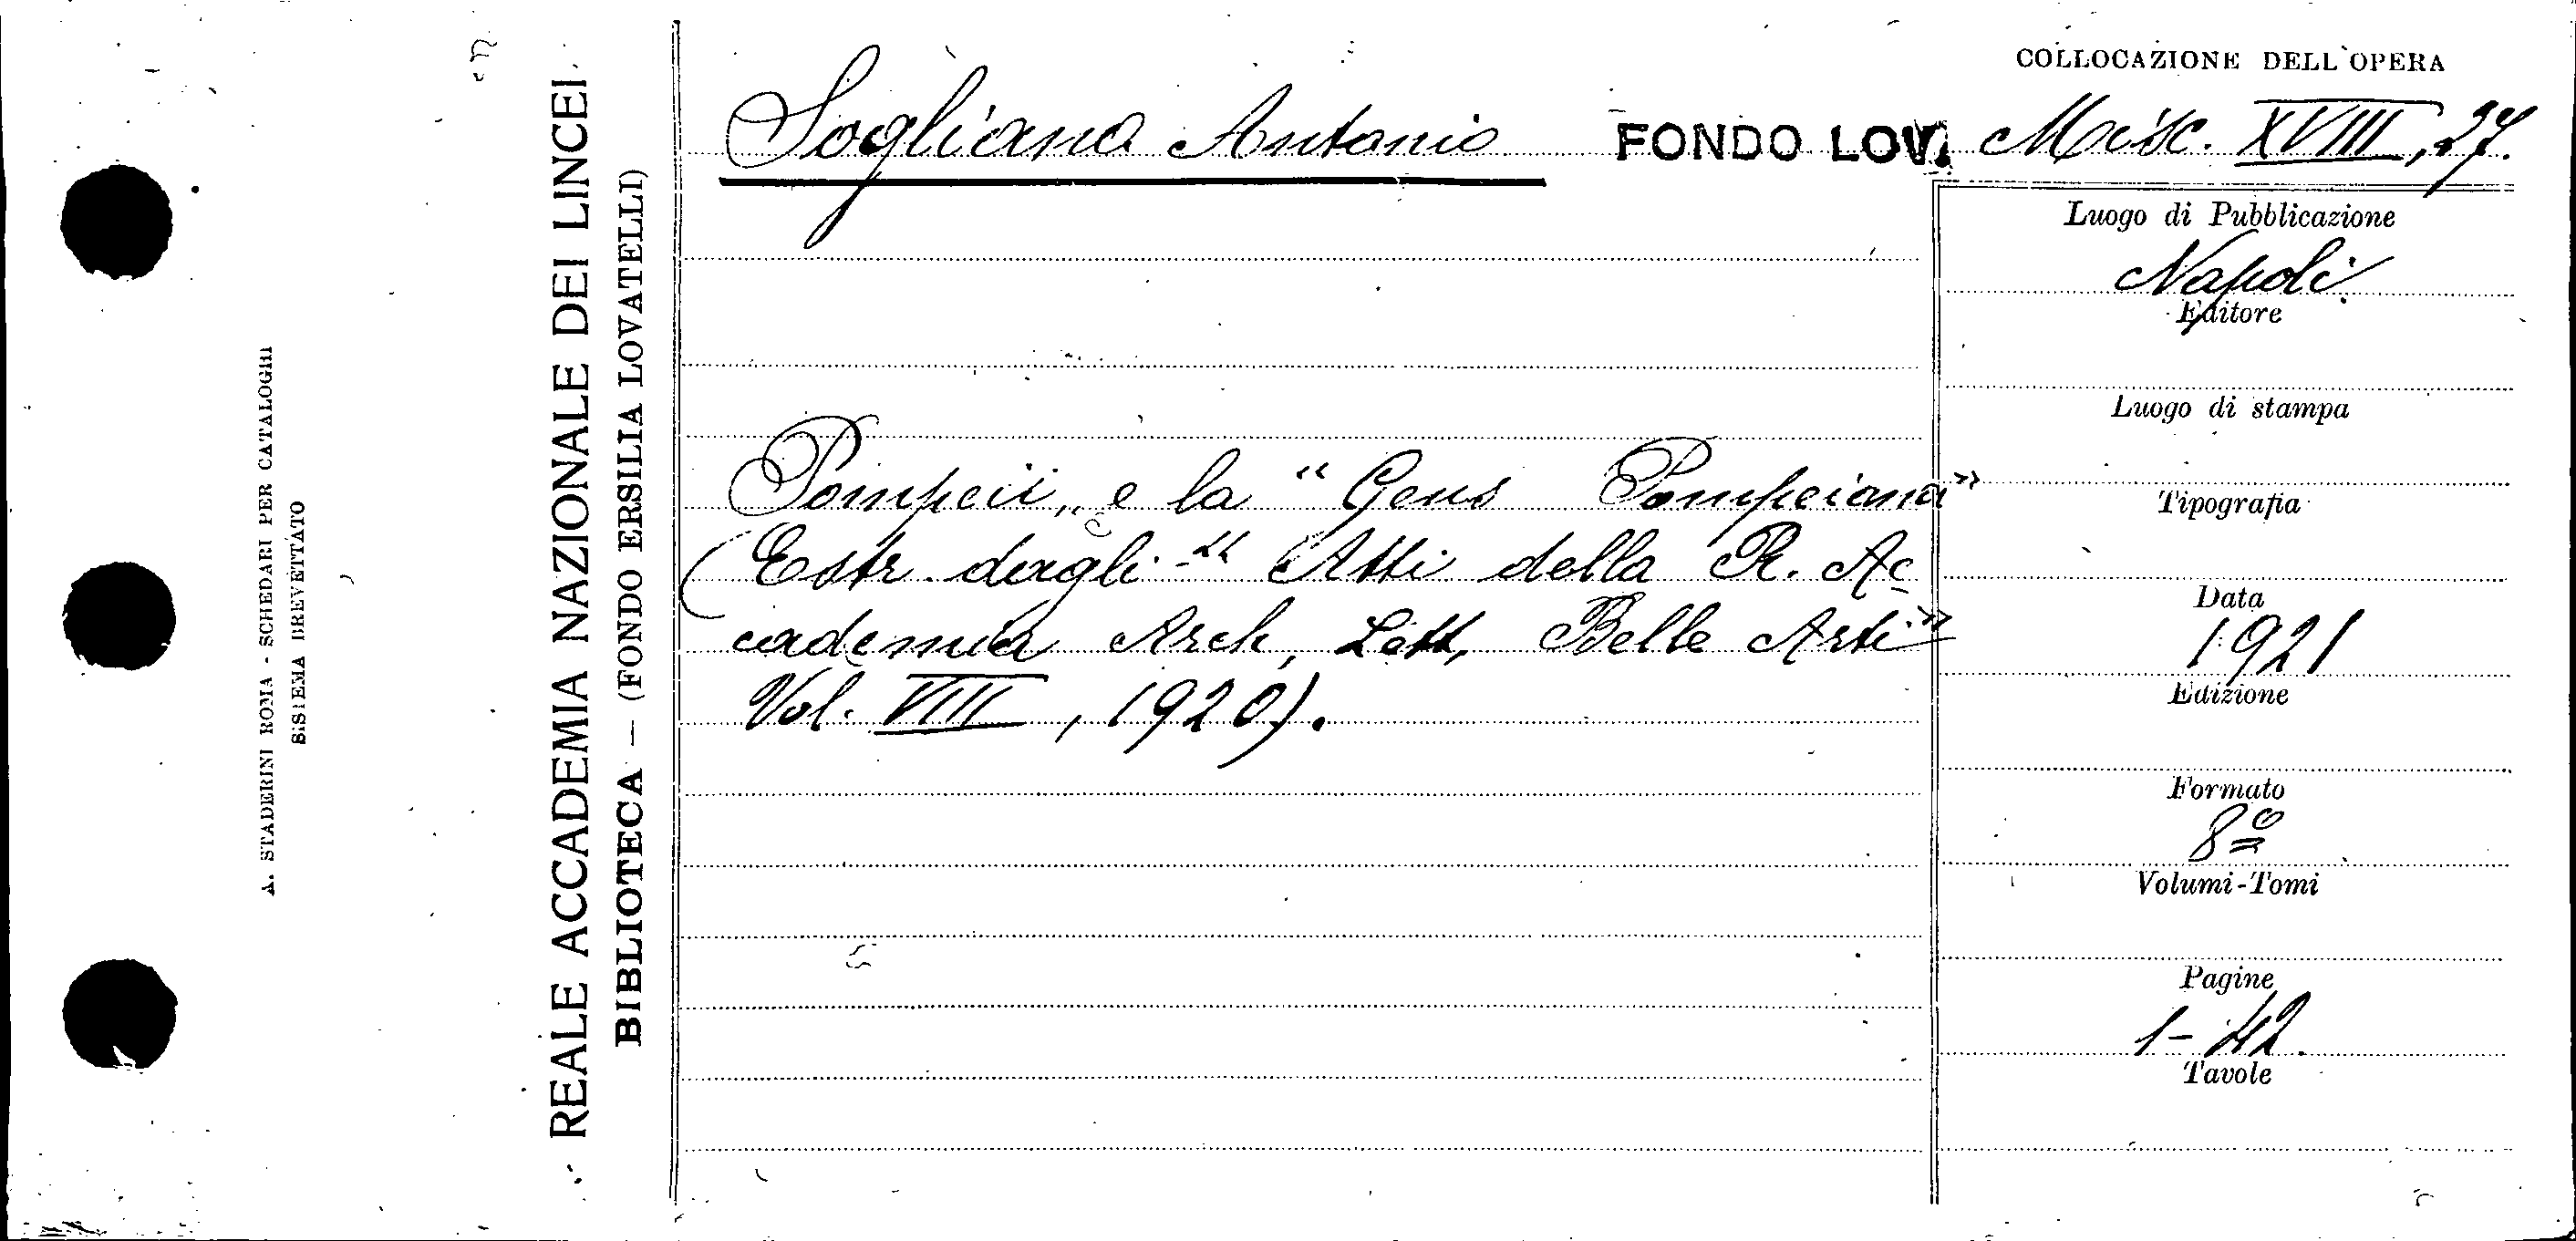 COLLOCAZIONE DELL'OPERA
Sogliano Antonio FONDO LOV. Misc. XVIII, 27.
Luogo di Pubblicazione
Napoli
Editore
Luogo di stampa
Pompeii, e la “Gens Pompeiana”
Tipografia
(Estr. dagli “Atti della R. Ac
Data
cademia Arch, Lett, Belle Arti”
1921
Edizione
Vol. VIII, 1920).
Formato
8º
Volumi-Tomi
Pagine
1-42.
Tavole
REALE ACCADEMIA NAZIONALE DEI LINCEI
BIBLIOTECA — (FONDO ERSILIA LOVATELLI)
A. STADERINI ROMA - SCHEDARI PER CATALOGHI
SISTEMA BREVETTATO